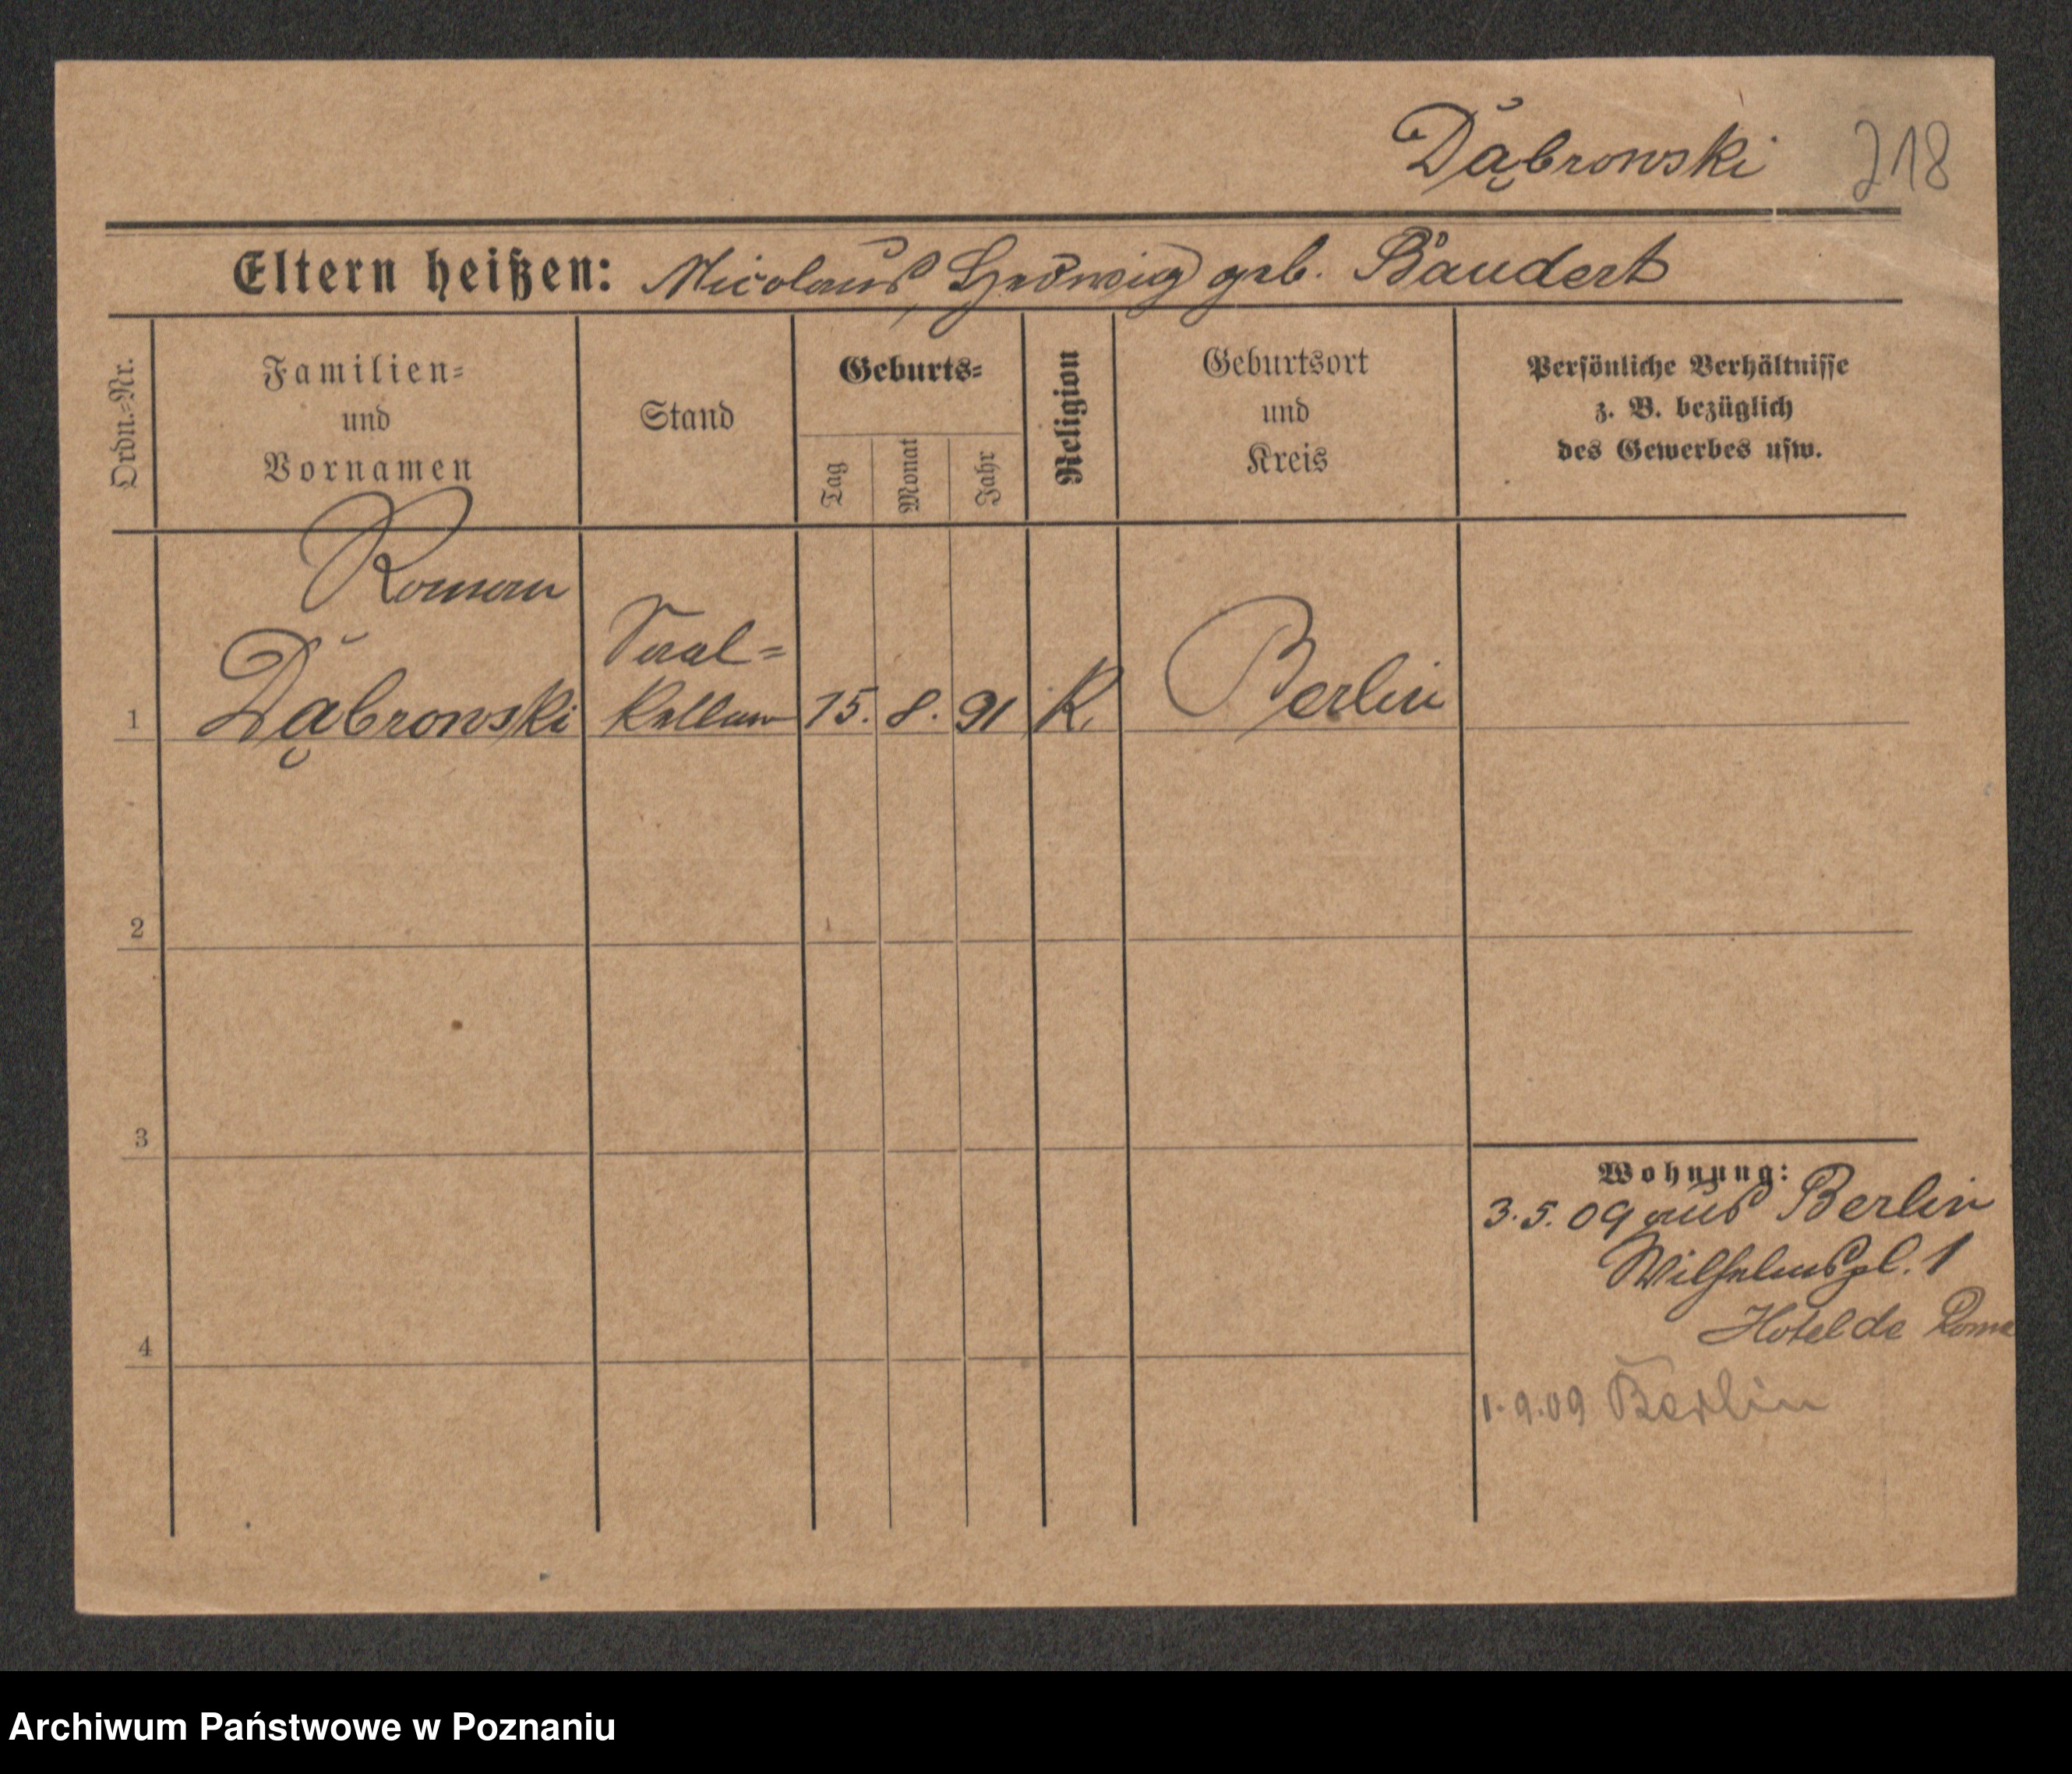 Dąbrowski 218
Eltern heißen: Nicolaus, Hedwig geb. Baudert
Ordn.=Nr.
Familien=
und
Vornamen
Stand
Geburts=
Tag
Monat
Jahr
Religion
Geburtsort
und
Kreis
Persönliche Verhältnisse
z. B. bezüglich
des Gewerbes usw.
Roman
Saal=
1 Dąbrowski Kellner 15. 8. 91 K. Berlin
2
3
Wohnung:
3.5.09 aus Berlin
Wilhelmspl. 1
Hotel de Rome
4
1.9.09 Berlin
Archiwum Państwowe w Poznaniu